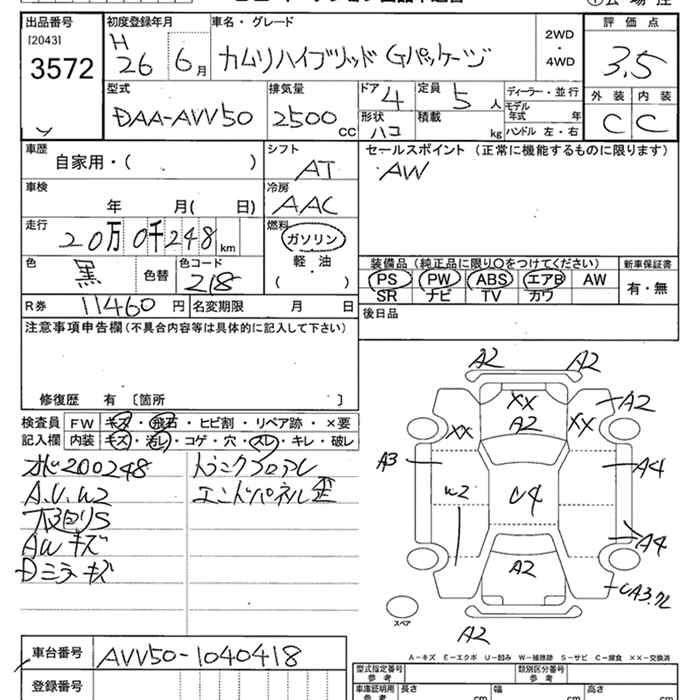 出品番号 初度登録年月 車名・グレード 2WD・4WD 評価点
[2043] H
3572 26 6月 カムリハイブリッド Gパッケージ 3.5
型式 排気量 ドア 4 定員 5人 ディーラー・並行 外装 内装
DAA-AVV50 2500cc 形状 ハコ 積載 kg モデル年式 年 C C
ハンドル 左・右
車歴 シフト セールスポイント (正常に機能するものに限ります)
自家用・( ) AT AW
車検 冷房
年 月( 日) AAC
走行 燃料
20万0千248km ガソリン
色 色コード 軽・油 装備品 (純正品に限り○をつけてください) 新車保証書
黒 色替 218 ( ) PS PW ABS エアB AW 有・無
SR ナビ TV カワ
R券 11460円 名変期限 月 日 後日品
注意事項申告欄 (不具合内容等は具体的に記入して下さい)
修復歴 有 〔箇所 〕
検査員 FW キズ・飛石・ヒビ割・リペア跡・×要
記入欄 内装 キズ・汚レ・コゲ・穴・スレ・キレ・破レ
200248
A.U.W2
AWキズ
Dミラーキズ
エンドパネル歪
A2 A2
XX
A2 XX A2
XX
A3 A4
W2 U4
A4
A2
A2
スペア
A-キズ E-エクボ U-凹み W-補修跡 S-サビ C-腐食 ××-交換済
車台番号 AVV50-1040418
登録番号
型式指定番号 参考 類別区分番号 参考
車庫証明用 参考 長さ cm 幅 cm 高さ cm